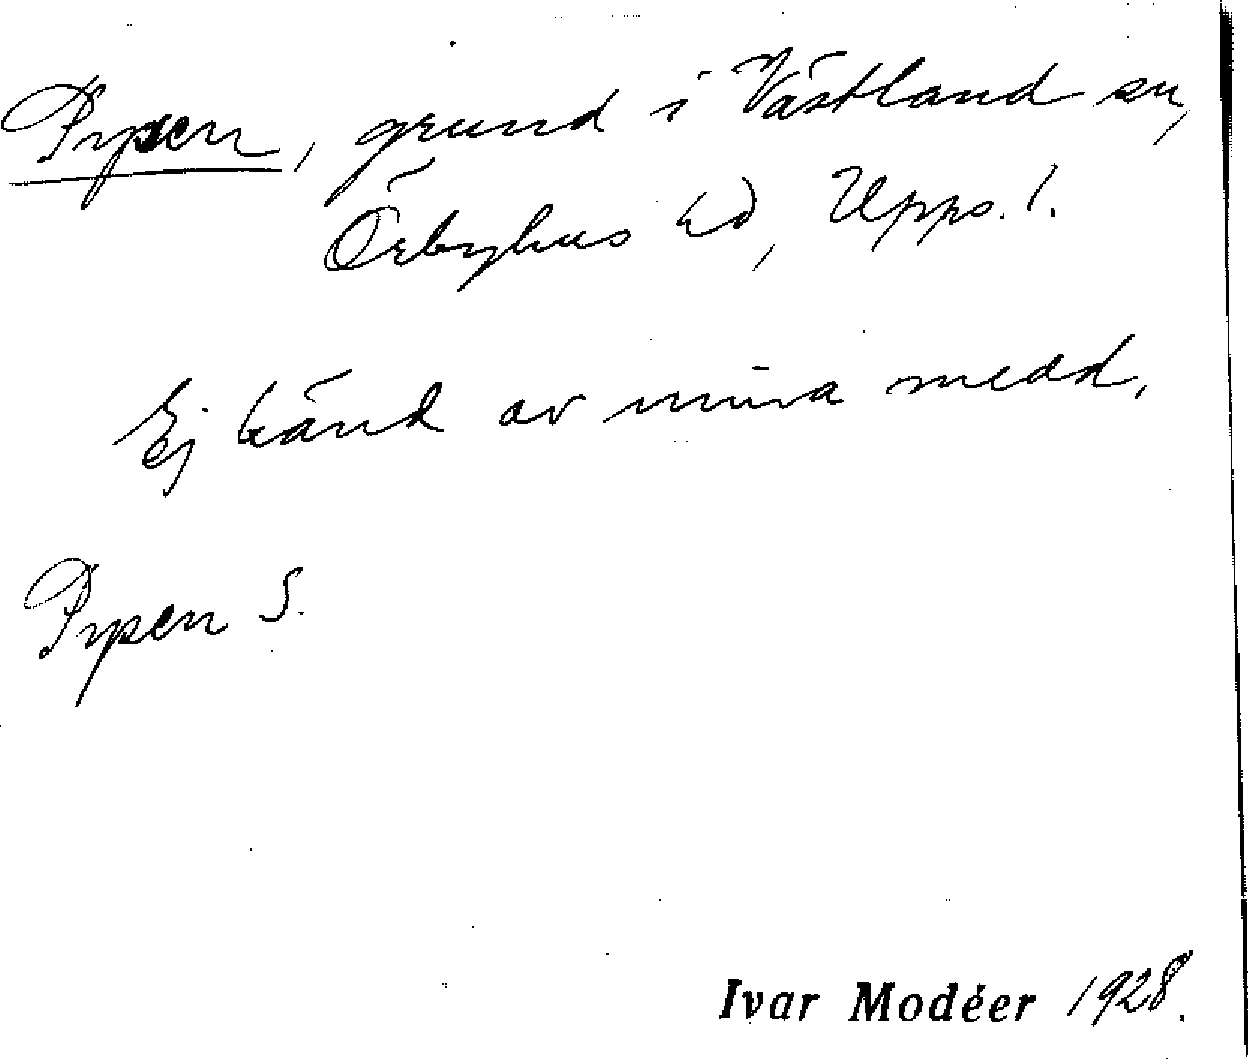 Pypen, grund i Västland sn,
Örbyhus hd, Upps. l.
Ej känd av mina medd.
Pypen S.
Ivar Modéer 1928.